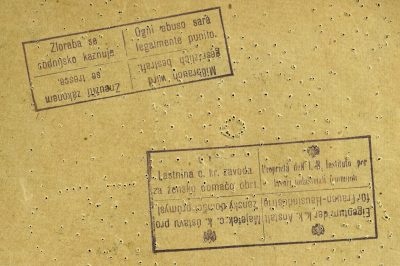 Zloraba se
sodnijsko kaznuje
Ogni abuso sarà
legalmente punito.
Mißbrauch wird
gerichtlich bestraft.
Zneužití zákonem
se tresce.
Lastnina c. kr. zavoda
za žensko domačo obrt.
Proprietà dell' I.-R. Instituto per
lavori
Eigentum der k. k. Anstalt
für Frauen-Hausindustrie
Majetek c. k. ústavu pro
ženský domácí průmysl